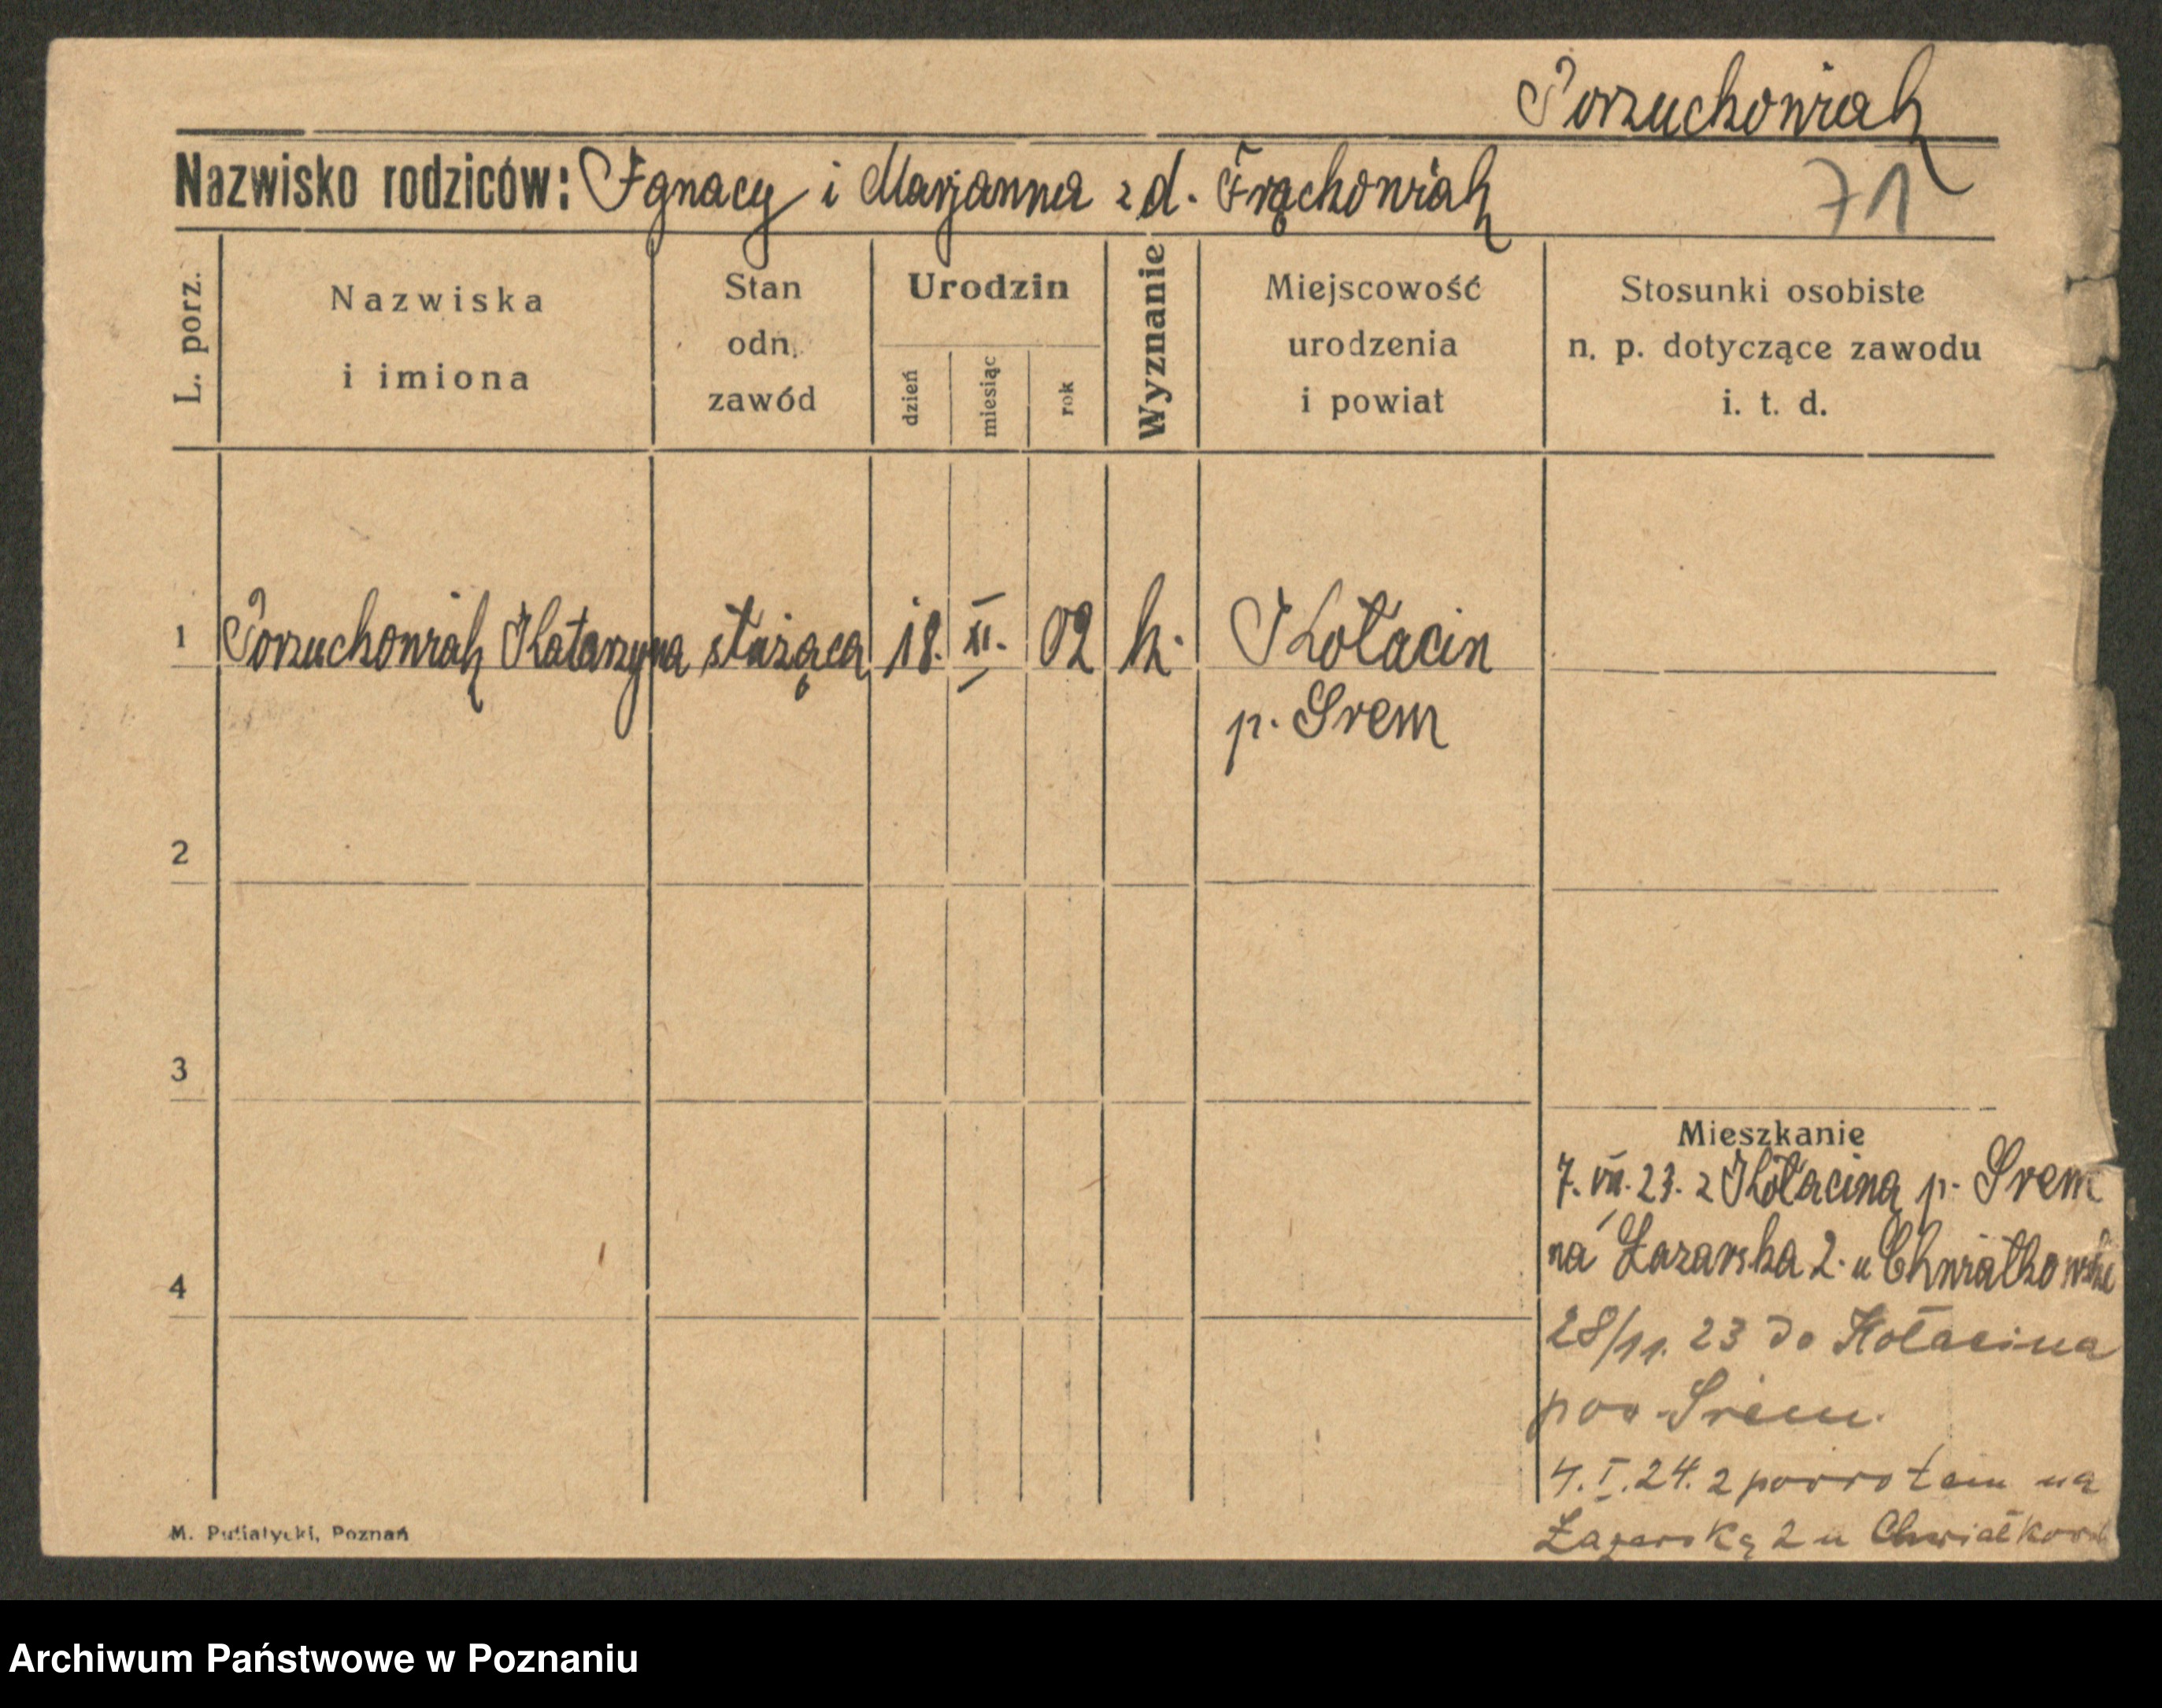 Porzuchowiak
Nazwisko rodziców: Ignacy i Marjanna z d. Frąckowiak
71
L. porz.
Nazwiska
i imiona
Stan
odn.
zawód
Urodzin
dzień
miesiąc
rok
Wyznanie
Miejscowość
urodzenia
i powiat
Stosunki osobiste
n. p. dotyczące zawodu
i. t. d.
1 Porzuchowiak Katarzyna służąca 18. XI. 02 k. Kołacin
p. Srem
2
3
4
Mieszkanie
7. VII. 23. z Kołacina p. Srem
na Łazarska 2. u Chwiałkowski
28/11. 23 do Kołacina
pow. Srem.
4. I. 24. z powrotem na
Łazarską 2 u Chwiałkowsk
M. Putiatycki, Poznań
Archiwum Państwowe w Poznaniu